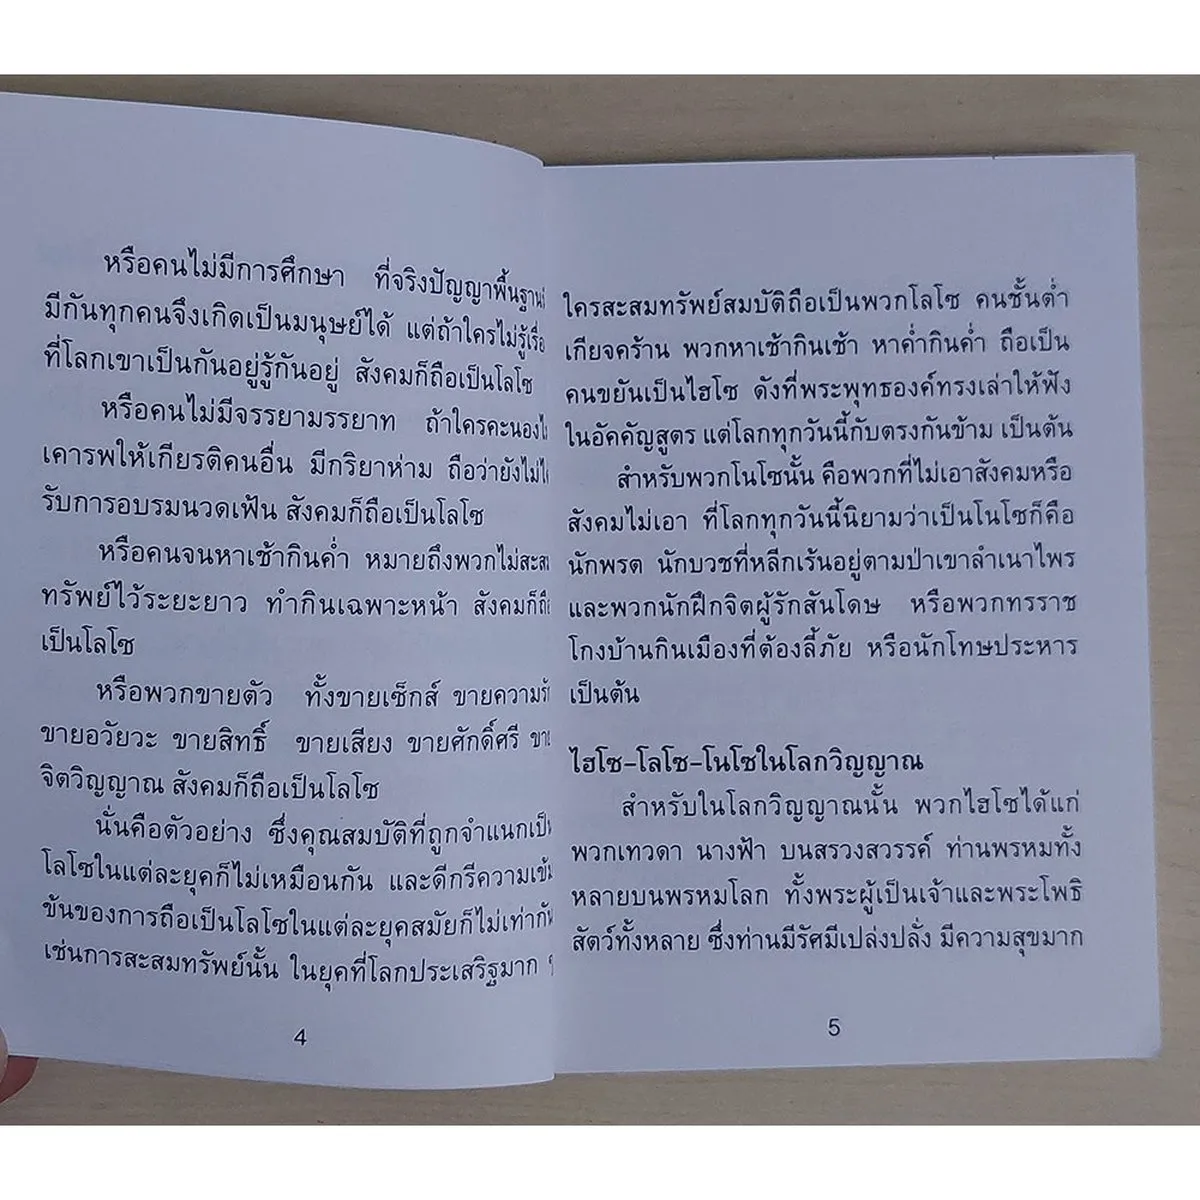 หรือคนไม่มีการศึกษา ที่จริงปัญญาพื้นฐาน
มีกันทุกคนจึงเกิดเป็นมนุษย์ได้ แต่ถ้าใครไม่รู้เรื่อ
ที่โลกเขาเป็นกันอยู่รู้กันอยู่ สังคมก็ถือเป็นโลโซ
หรือคนไม่มีจรรยามรรยาท ถ้าใครคะนอง
เคารพให้เกียรติคนอื่น มีกริยาห่าม ถือว่ายังไม่ไ
รับการอบรมนวดเฟ้น สังคมก็ถือเป็นโลโซ
หรือคนจนหาเช้ากินค่ำ หมายถึงพวกไม่สะส
ทรัพย์ไว้ระยะยาว ทำกินเฉพาะหน้า สังคมก็ถื
เป็นโลโซ
หรือพวกขายตัว ทั้งขายเซ็กส์ ขายความรั
ขายอวัยวะ ขายสิทธิ์ ขายเสียง ขายศักดิ์ศรี ขา
จิตวิญญาณ สังคมก็ถือเป็นโลโซ
นั่นคือตัวอย่าง ซึ่งคุณสมบัติที่ถูกจำแนกเป็
โลโซในแต่ละยุคก็ไม่เหมือนกัน และดีกรีความเข้ม
ข้นของการถือเป็นโลโซในแต่ละยุคสมัยก็ไม่เท่ากั
เช่นการสะสมทรัพย์นั้น ในยุคที่โลกประเสริฐมาก ๆ
4
ใครสะสมทรัพย์สมบัติถือเป็นพวกโลโซ คนชั้นต่ำ
เกียจคร้าน พวกหาเช้ากินเช้า หาค่ำกินค่ำ ถือเป็น
คนขยันเป็นไฮโซ ดังที่พระพุทธองค์ทรงเล่าให้ฟัง
ในอัคคัญสูตร แต่โลกทุกวันนี้กับตรงกันข้าม เป็นต้น
สำหรับพวกโนโซนั้น คือพวกที่ไม่เอาสังคมหรือ
สังคมไม่เอา ที่โลกทุกวันนี้นิยามว่าเป็นโนโซก็คือ
นักพรต นักบวชที่หลีกเร้นอยู่ตามป่าเขาลำเนาไพร
และพวกนักฝึกจิตผู้รักสันโดษ หรือพวกทรราช
โกงบ้านกินเมืองที่ต้องลี้ภัย หรือนักโทษประหาร
เป็นต้น
ไฮโซ-โลโซ-โนโซในโลกวิญญาณ
สำหรับในโลกวิญญาณนั้น พวกไฮโซได้แก่
พวกเทวดา นางฟ้า บนสรวงสวรรค์ ท่านพรหมทั้ง
หลายบนพรหมโลก ทั้งพระผู้เป็นเจ้าและพระโพธิ
สัตว์ทั้งหลาย ซึ่งท่านมีรัศมีเปล่งปลั่ง มีความสุขมาก
5